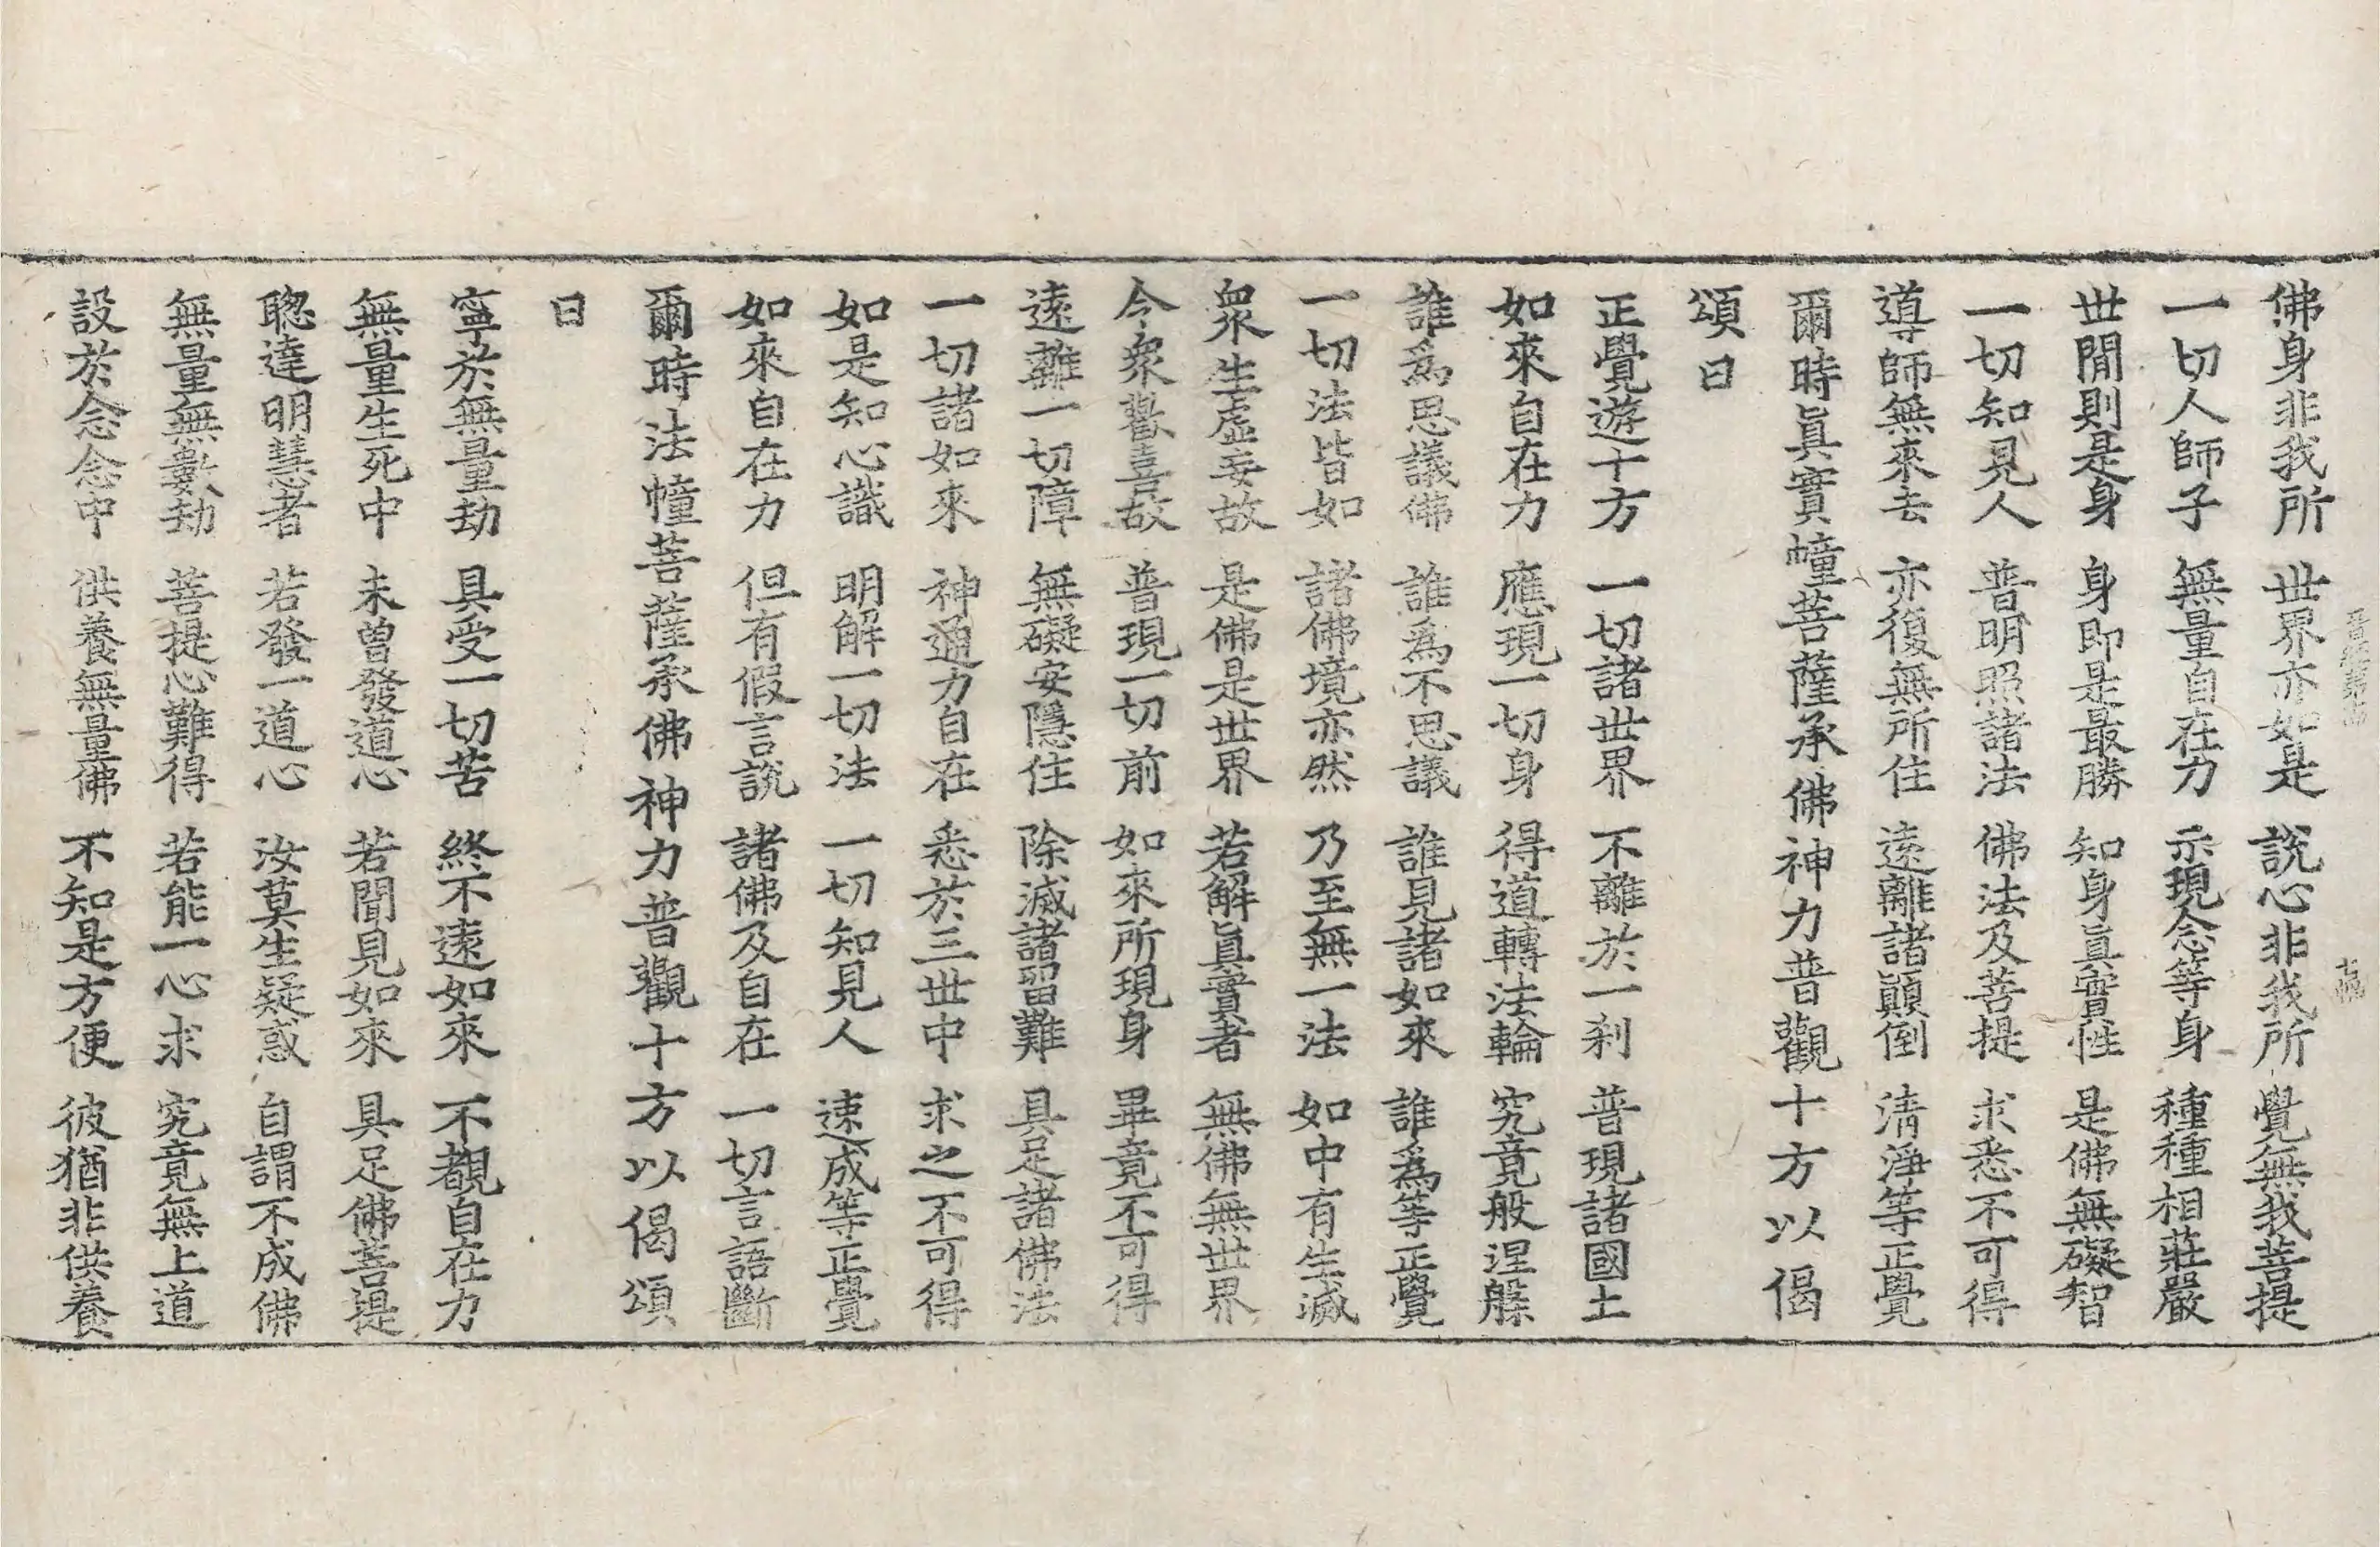 佛身非我所 世界亦如是 說心非我所 覺無我菩提
一切人師子 無量自在力 示現念等身 種種相莊嚴
世間則是身 身即是最勝 知身眞實性 是佛無礙智
一切知見人 普明照諸法 佛法及菩提 求悉不可得
導師無來去 亦復無所住 遠離諸顚倒 淸淨等正覺
爾時眞實幢菩薩承佛神力普觀十方以偈
頌曰
正覺遊十方 一切諸世界 不離於一刹 普現諸國土
如來自在力 應現一切身 得道轉法輪 究竟般涅槃
誰爲思議佛 誰爲不思議 誰見諸如來 誰爲等正覺
一切法皆如 諸佛境亦然 乃至無一法 如中有生滅
衆生虛妄故 是佛是世界 若解眞實者 無佛無世界
今衆歡喜故 普現一切前 如來所現身 畢竟不可得
遠離一切障 無礙安隱住 除滅諸留難 具足諸佛法
一切諸如來 神通力自在 悉於三世中 求之不可得
如是知心識 明解一切法 一切知見人 速成等正覺
如來自在力 但有假言說 諸佛及自在 一切言語斷
爾時法幢菩薩承佛神力普觀十方以偈頌
曰
寧於無量劫 具受一切苦 終不遠如來 不覩自在力
無量生死中 未曾發道心 若聞見如來 具足佛菩提
聰達明慧者 若發一道心 汝莫生疑惑 自謂不成佛
無量無數劫 菩提心難得 若能一心求 究竟無上道
設於念念中 供養無量佛 不知是方便 彼猶非供養